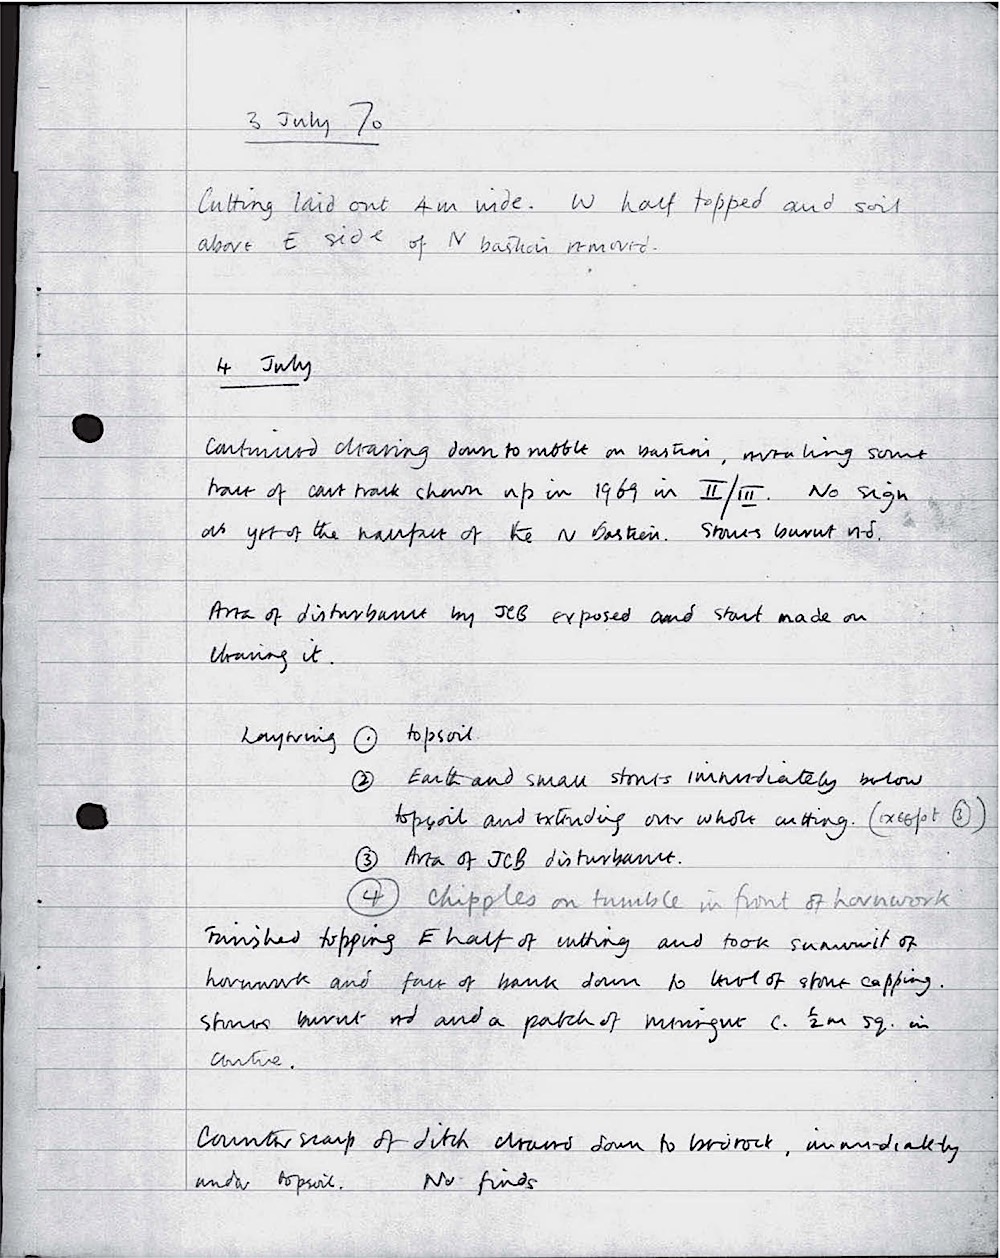 3 July 70
Cutting laid out 4m wide. W half topped and soil
above E side of N bastion removed.
4 July
Continued clearing down to rubble on bastion, revealing some
trace of cart track shown up in 1969 in II/III. No sign
as yet of the of the N bastion. Stones burnt red.
Area of disturbance by JCB exposed and start made on
clearing it.
Layering ① topsoil.
② Earth and small stones immediately below
topsoil and extending over whole cutting. (except ③)
③ Area of JCB disturbance.
④ Chipples on tumble in front of hornwork
Finished topping E half of cutting and took summit of
hornwork and face of bank down to level of stone capping.
Stones burnt red and a patch of c. ½m sq. in
centre.
Counterscarp of ditch cleared down to bedrock, immediately
under topsoil. No finds